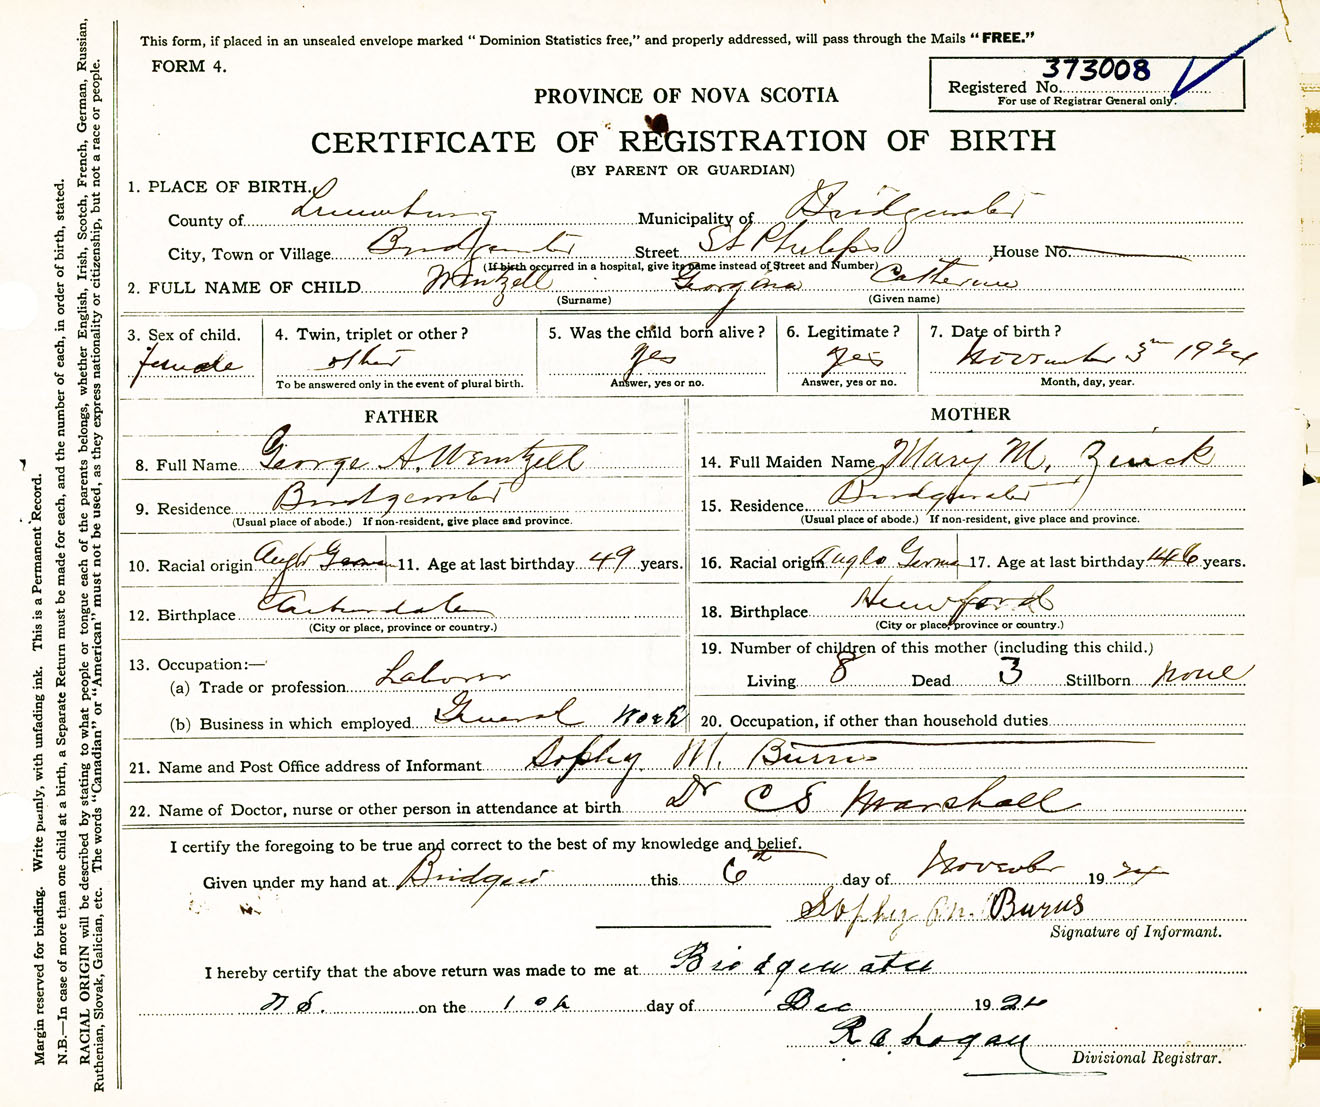 This form, if placed in an unsealed envelope marked " Dominion Statistics free," and properly addressed, will pass through the Mails "FREE."
FORM 4.
373008
Registered No.
For use of Registrar General only.
PROVINCE OF NOVA SCOTIA
CERTIFICATE OF REGISTRATION OF BIRTH
(BY PARENT OR GUARDIAN)
1. PLACE OF BIRTH.
County of Lunenburg Municipality of Bridgewater
City, Town or Village Bridgewater Street St Philips House No.
(If birth occurred in a hospital, give its name instead of Street and Number)
2. FULL NAME OF CHILD Wentzell Georgina Catherine
(Surname) (Given name)
3. Sex of child. female
4. Twin, triplet or other ? other
To be answered only in the event of plural birth.
5. Was the child born alive ? Yes
Answer, yes or no.
6. Legitimate ? Yes
Answer, yes or no.
7. Date of birth ? November 3 1924
Month, day, year.
FATHER
8. Full Name George A. Wentzell
9. Residence Bridgewater
(Usual place of abode.) If non-resident, give place and province.
10. Racial origin Anglo German 11. Age at last birthday 49 years.
12. Birthplace
(City or place, province or country.)
13. Occupation:—
(a) Trade or profession Laborer
(b) Business in which employed General Work
MOTHER
14. Full Maiden Name Mary M. Zinck
15. Residence Bridgewater
(Usual place of abode.) If non-resident, give place and province.
16. Racial origin Anglo German 17. Age at last birthday 46 years.
18. Birthplace
(City or place, province or country.)
19. Number of children of this mother (including this child.)
Living 8 Dead 3 Stillborn none
20. Occupation, if other than household duties
21. Name and Post Office address of Informant Sophy M. Burns
22. Name of Doctor, nurse or other person in attendance at birth Dr C S Marshall
I certify the foregoing to be true and correct to the best of my knowledge and belief.
Given under my hand at this 6th day of November 1924
Sophy M. Burns
Signature of Informant.
I hereby certify that the above return was made to me at Bridgewater
N S. on the 10th day of Dec 1924
Logan
Divisional Registrar.
Margin reserved for binding. Write plainly, with unfading ink. This is a Permanent Record.
N.B.—In case of more than one child at a birth, a Separate Return must be made for each, and the number of each, in order of birth, stated.
RACIAL ORIGIN will be described by stating to what people or tongue each of the parents belongs, whether English, Irish, Scotch, French, German, Russian,
Ruthenian, Slovak, Galician, etc. The words "Canadian" or "American" must not be used, as they express nationality or citizenship, but not a race or people.